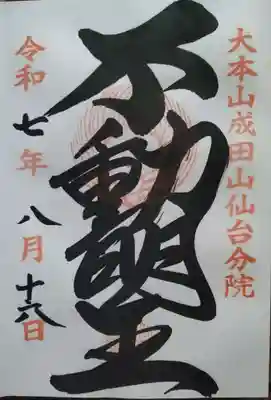 大本山成田山仙台分院
不動明王
令和七年八月十六日